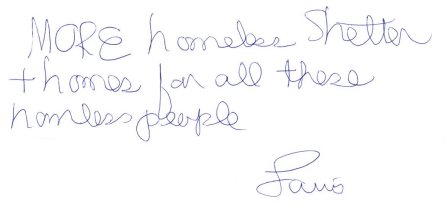 MORE homeless Shelter
+ homes for all these
homless people